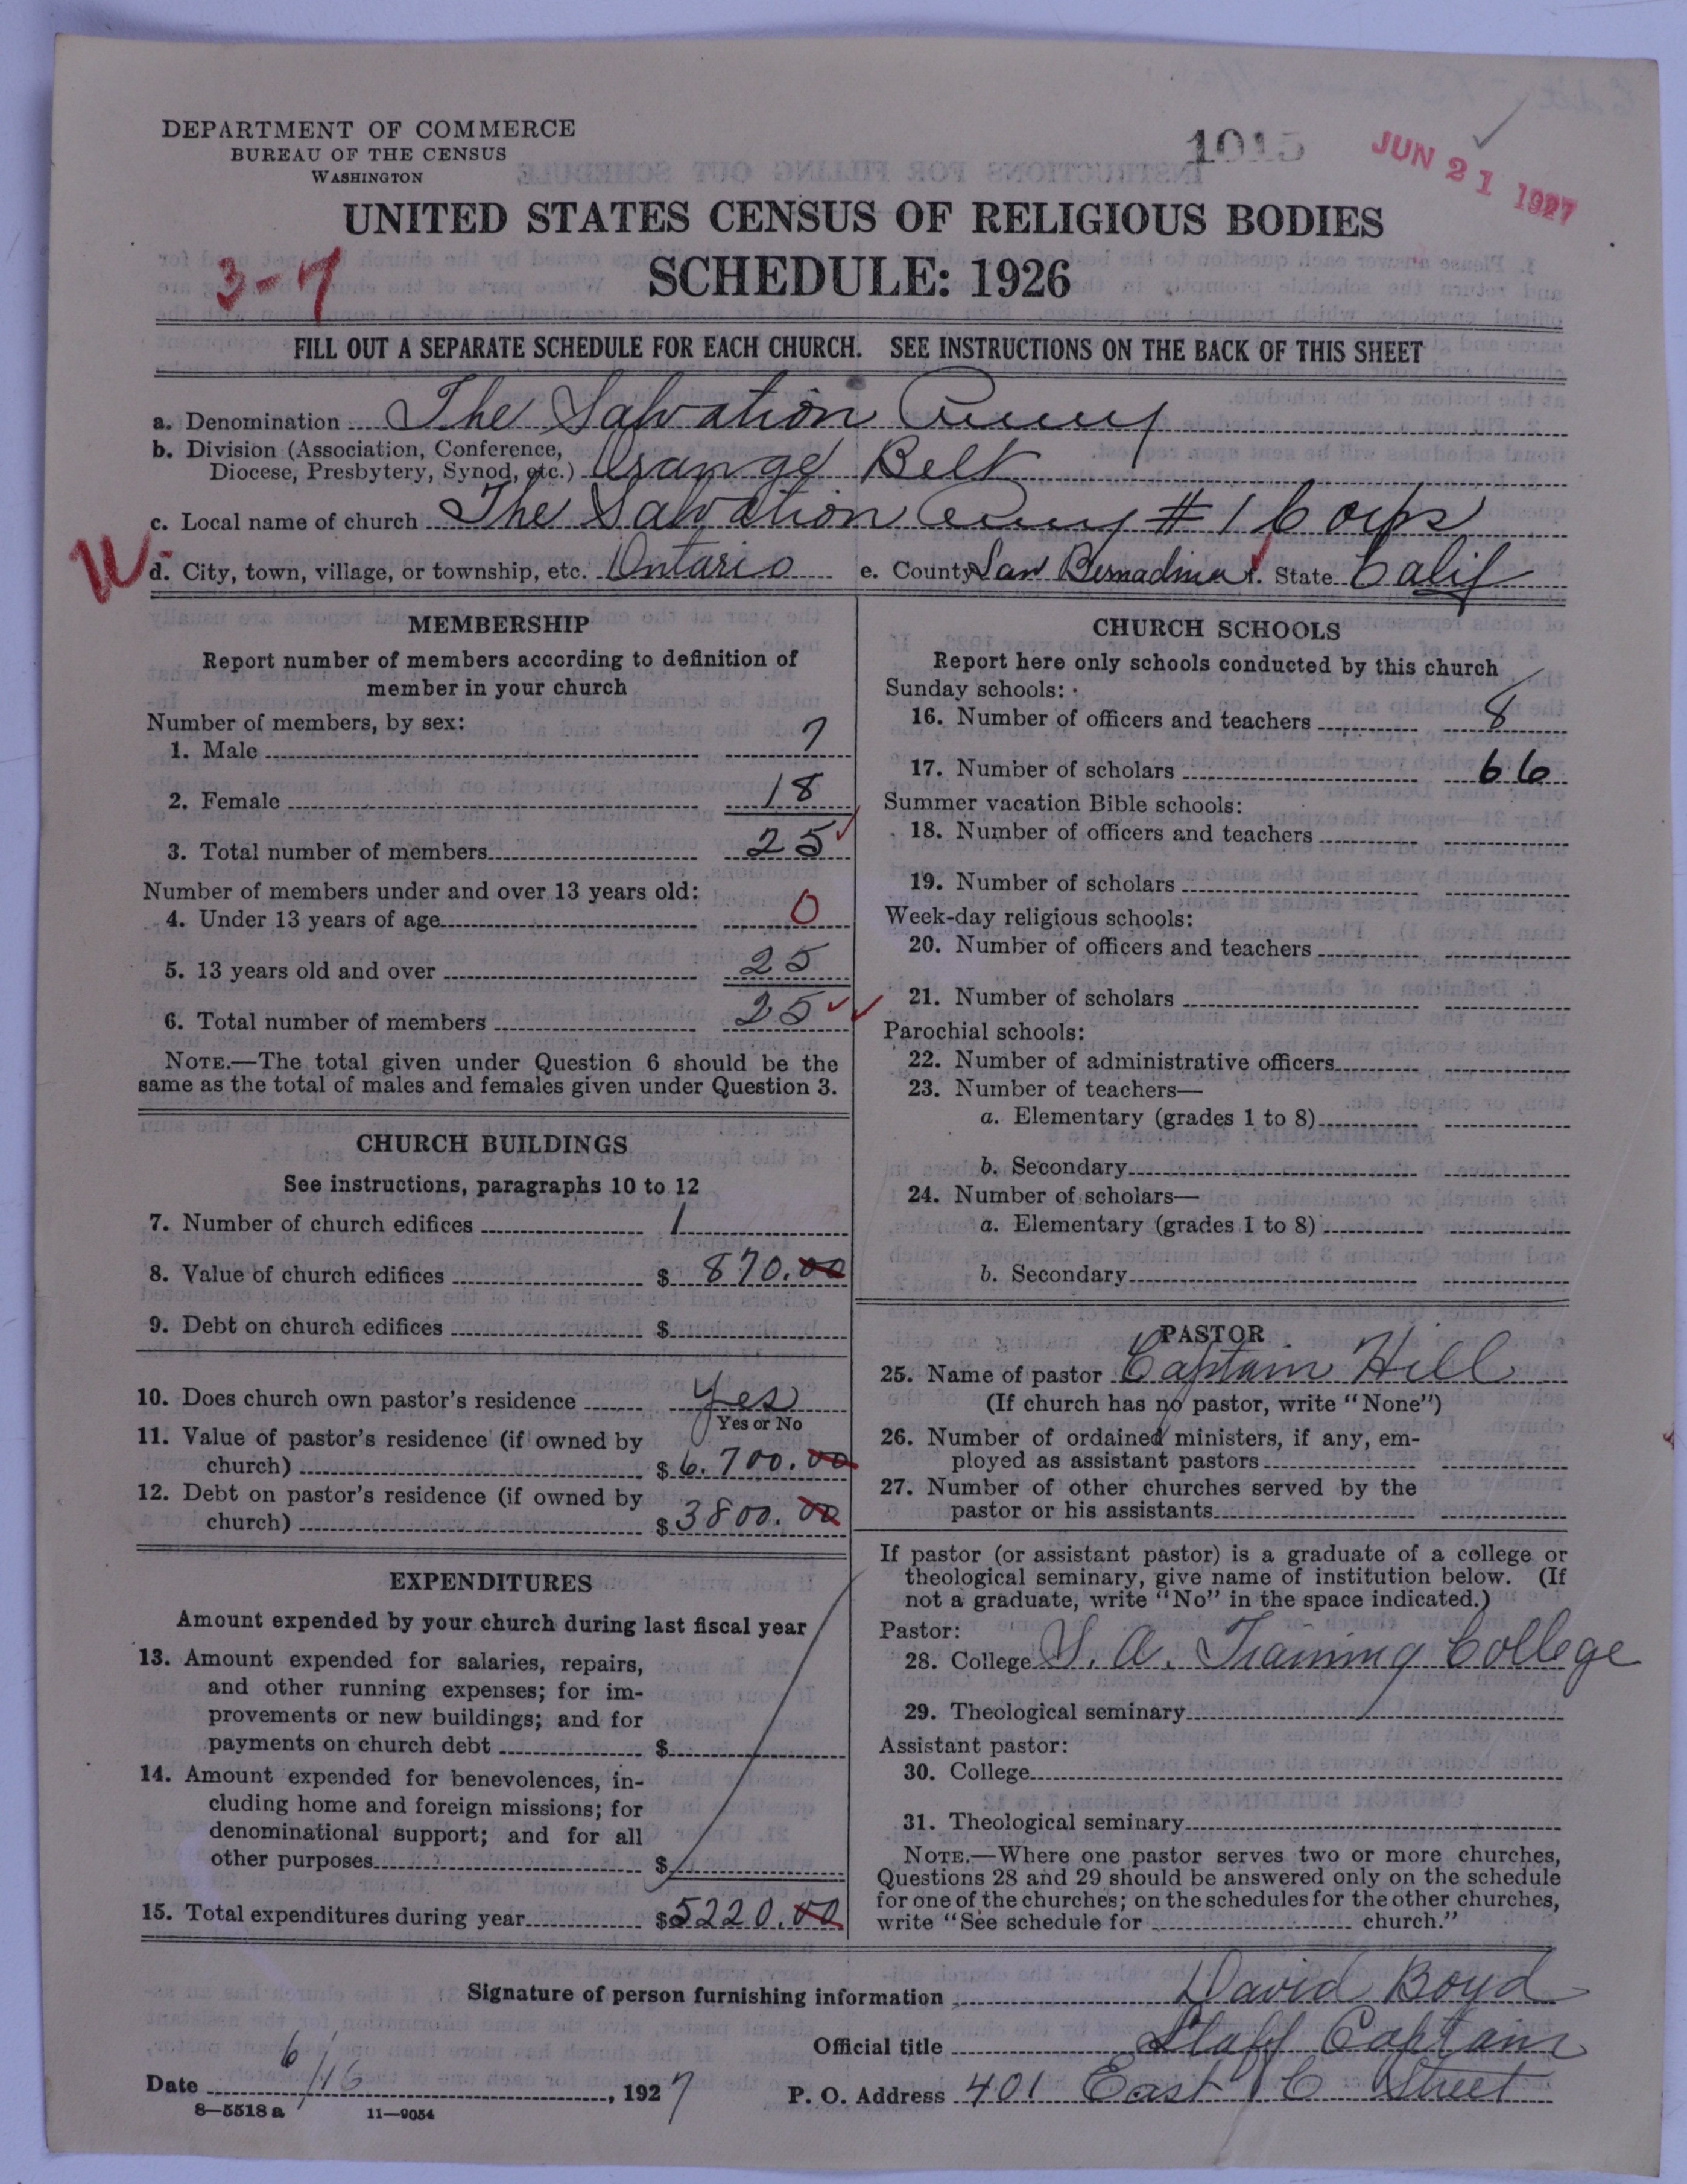 DEPARTMENT OF COMMERCE
BUREAU OF THE CENSUS
WASHINGTON
1015
JUN 21 1927
UNITED STATES CENSUS OF RELIGIOUS BODIES
3-7
SCHEDULE: 1926
FILL OUT A SEPARATE SCHEDULE FOR EACH CHURCH. SEE INSTRUCTIONS ON THE BACK OF THIS SHEET
a. Denomination The Salvation Army
b. Division (Association, Conference,
Diocese, Presbytery, Synod, etc.) Orange Belt
c. Local name of church The Salvation Army #1 Corps
d. City, town, village, or township, etc. Ontario e. County San Bernadina f. State Calif
MEMBERSHIP
Report number of members according to definition of
member in your church
Number of members, by sex:
1. Male 7
2. Female 18
3. Total number of members 25
Number of members under and over 13 years old:
4. Under 13 years of age 0
5. 13 years old and over 25
6. Total number of members 25
NOTE.—The total given under Question 6 should be the
same as the total of males and females given under Question 3.
CHURCH BUILDINGS
See instructions, paragraphs 10 to 12
7. Number of church edifices 1
8. Value of church edifices $ 870.00
9. Debt on church edifices $
10. Does church own pastor's residence Yes
Yes or No
11. Value of pastor's residence (if owned by
church) $ 6.700.00
12. Debt on pastor's residence (if owned by
church) $ 3800.00
EXPENDITURES
Amount expended by your church during last fiscal year
13. Amount expended for salaries, repairs,
and other running expenses; for im-
provements or new buildings; and for
payments on church debt $
14. Amount expended for benevolences, in-
cluding home and foreign missions; for
denominational support; and for all
other purposes $
15. Total expenditures during year $ 5220.00
CHURCH SCHOOLS
Report here only schools conducted by this church
Sunday schools:
16. Number of officers and teachers 8
17. Number of scholars 66
Summer vacation Bible schools:
18. Number of officers and teachers
19. Number of scholars
Week-day religious schools:
20. Number of officers and teachers
21. Number of scholars
Parochial schools:
22. Number of administrative officers
23. Number of teachers—
a. Elementary (grades 1 to 8)
b. Secondary
24. Number of scholars—
a. Elementary (grades 1 to 8)
b. Secondary
PASTOR
25. Name of pastor Captain Hill
(If church has no pastor, write "None")
26. Number of ordained ministers, if any, em-
ployed as assistant pastors
27. Number of other churches served by the
pastor or his assistants
If pastor (or assistant pastor) is a graduate of a college or
theological seminary, give name of institution below. (If
not a graduate, write "No" in the space indicated.)
Pastor:
28. College S. A. Training College
29. Theological seminary
Assistant pastor:
30. College
31. Theological seminary
NOTE.—Where one pastor serves two or more churches,
Questions 28 and 29 should be answered only on the schedule
for one of the churches; on the schedules for the other churches,
write "See schedule for church."
Signature of person furnishing information David Boyd
Official title Staff Captain
Date 6/16, 1927 P. O. Address 401 East C Street
8—5518 a 11—9054